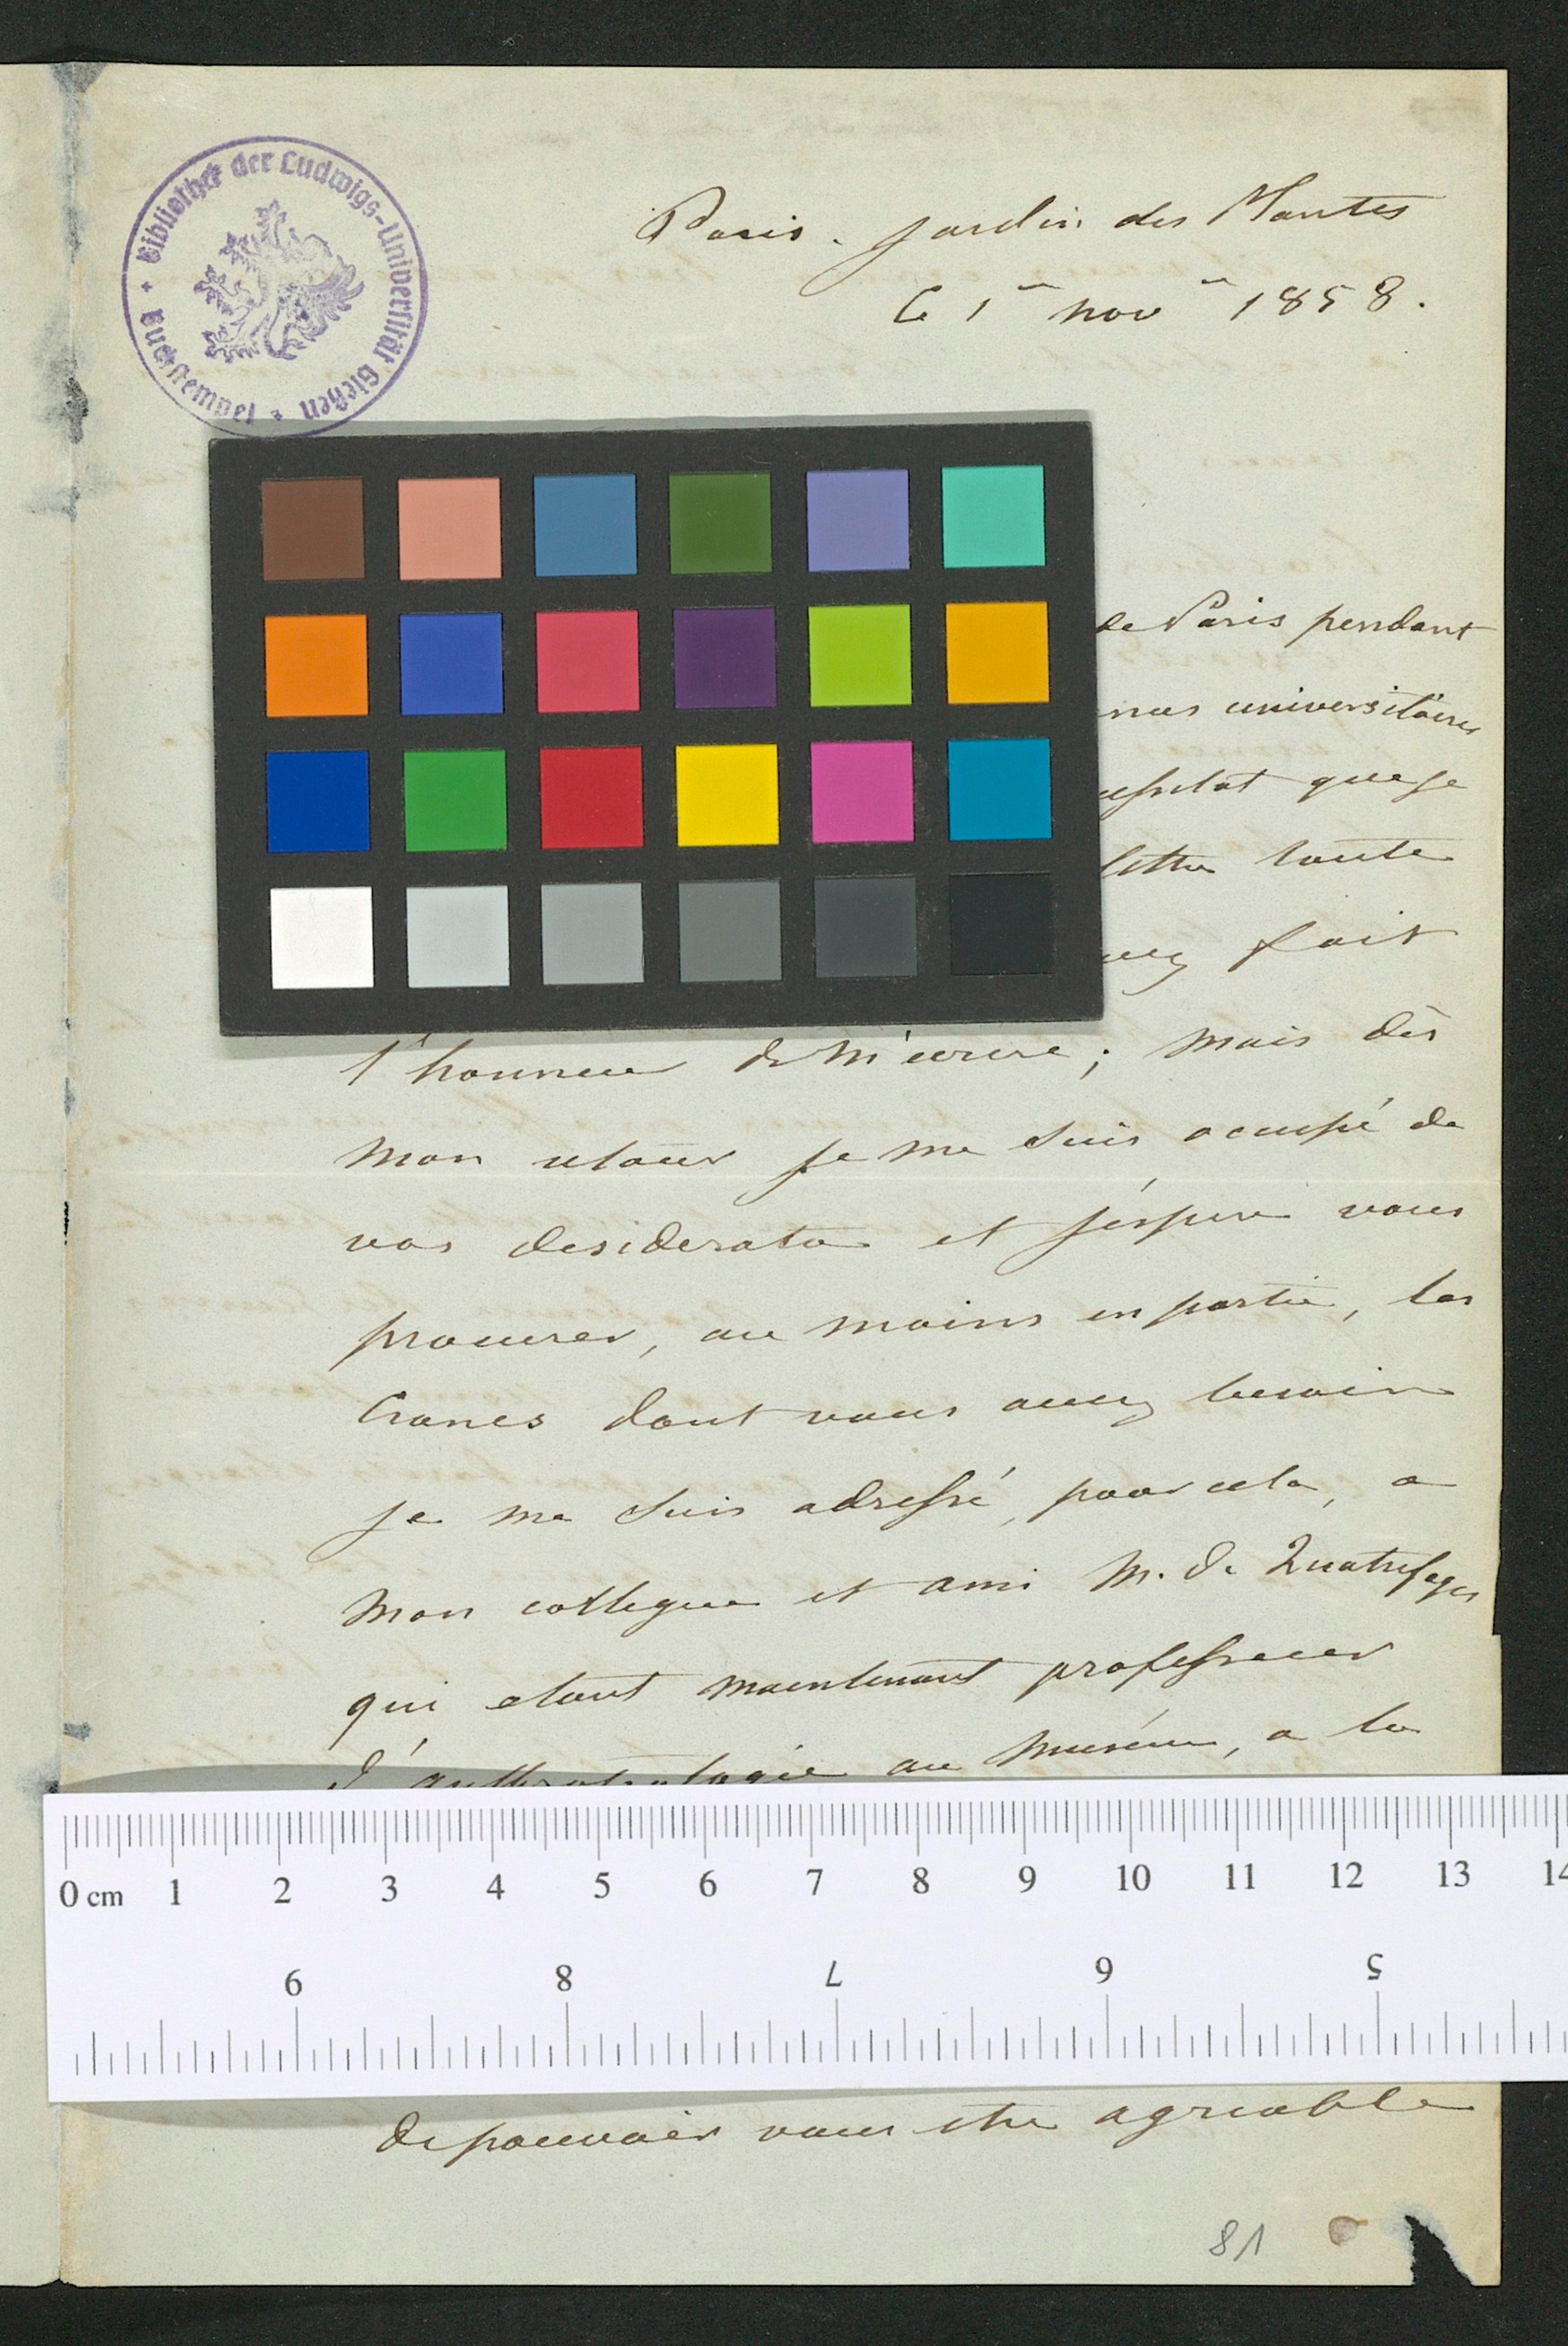 Bibliothek der Ludwigs-Universität Gießen
Buchstempel
Paris. Jardin des Plantes
le 1er nov 1858.
de Paris pendant
universitaires
que je
lettre toute
fait
l'honneur de m'ecrire; mais dès
mon retour je me suis occupé de
vos desiderata et j'éspere vous
procurer, au moins en partie, les
Cranes dont vous avez besoin
je me suis adressé, pour cela, a
mon collegue et ami M. de Quatrefages
qui etant maintenant professeur
d'anthropologie au muséum, a la
0 cm 1 2 3 4 5 6 7 8 9 10 11 12 13 14
9 8 7 6 5
de pouvoir vous etre agreable
81